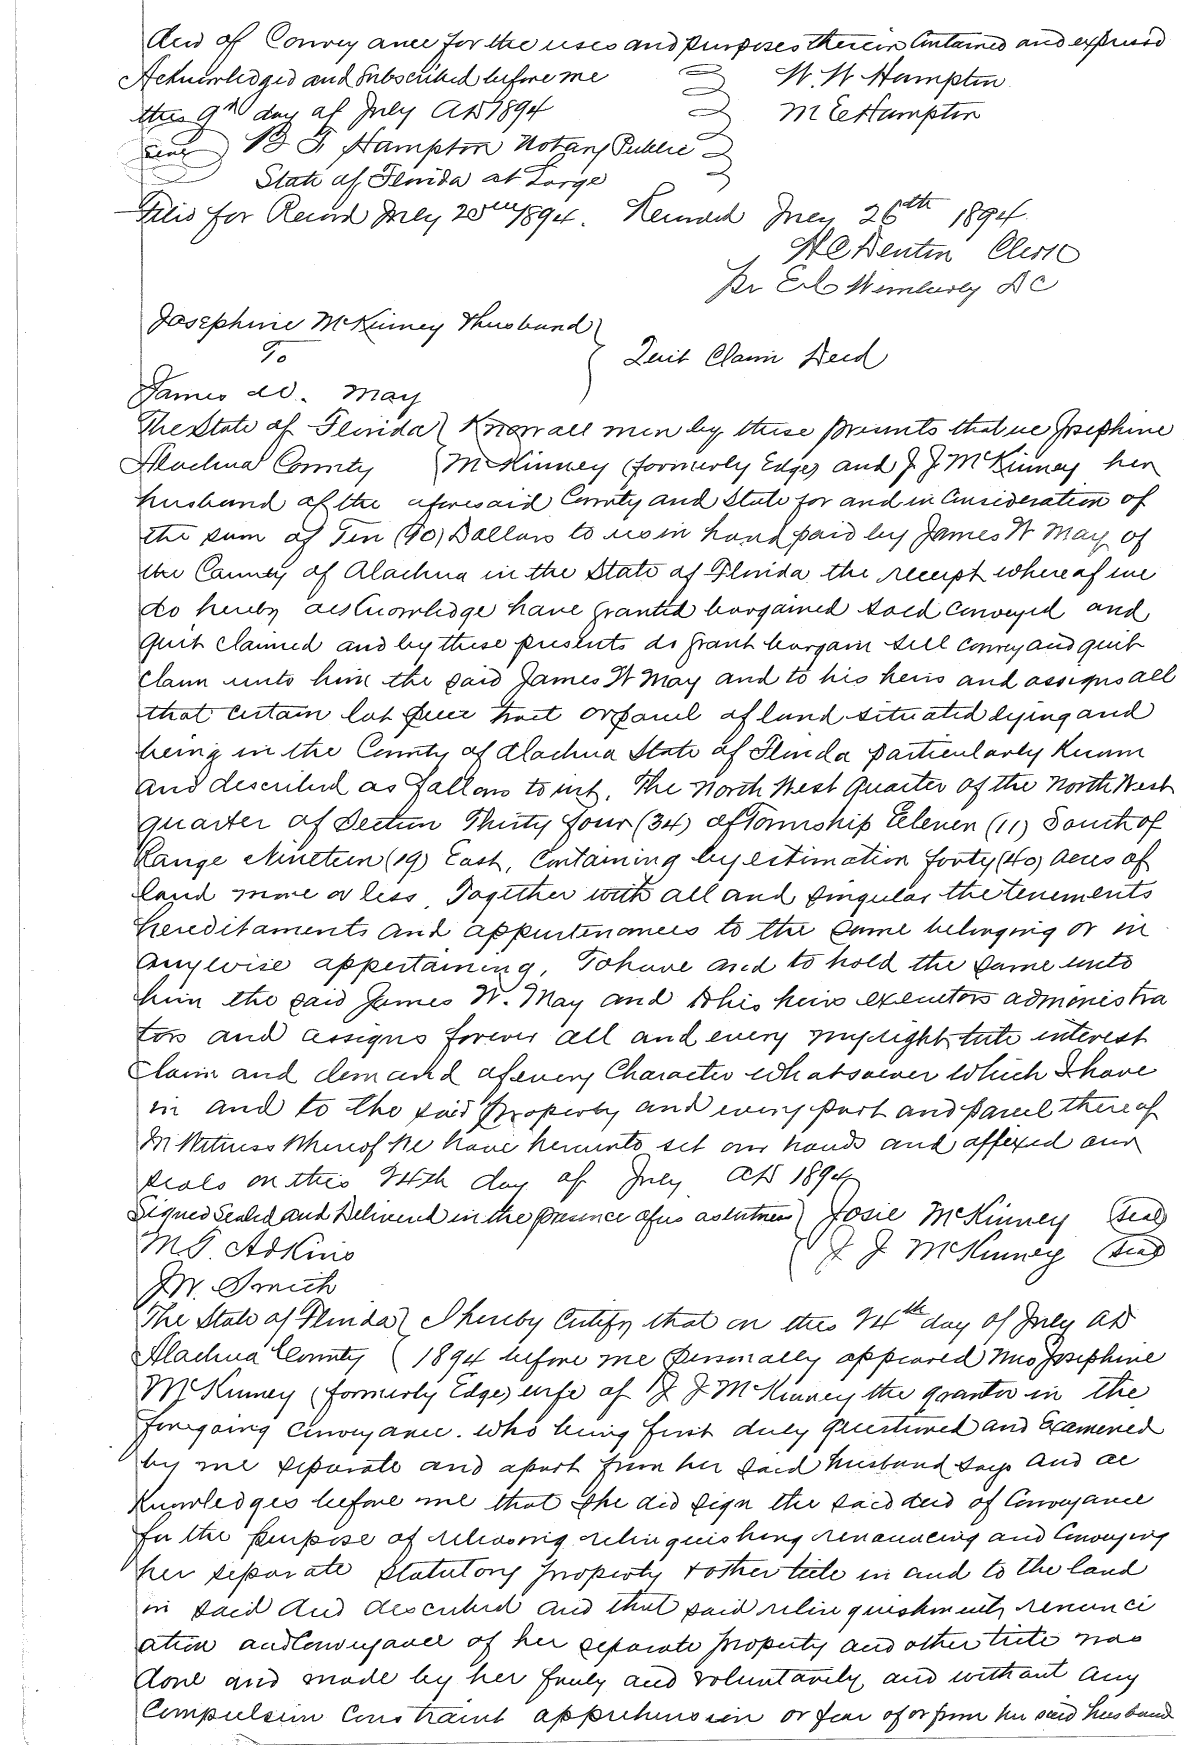 deed of Conveyance for the uses and purposes therein Contained and expressed
Acknowledged and Subscribed before me W. W Hampton
this 9th day of July AD 1894 M E Hampton
Seal B F Hampton Notary Public
State of Florida at Large
Filed for Record July 25th 1894. Recorded July 26th 1894
H C Denton Clerk
pr E C Wimberly DC
Josephine McKinney & husband
To Quit Claim Deed
James W. May
The State of Florida Know all men by these presents that we Josephine
Alachua County McKinney (formerly Edge) and J J McKinney her
husband of the aforesaid County and State for and in Consideration of
the sum of Ten (10) Dollars to us in hand paid by James W May of
the County of Alachua in the State of Florida the receipt whereof we
do hereby acknowledge have granted bargained sold conveyed and
quit claimed and by these presents do grant bargain sell convey and quit
claim unto him the said James W May and to his heirs and assigns all
that certain lot piece tract or parcel of land situated lying and
being in the County of Alachua State of Florida particularly known
and described as follows to wit. The North West Quarter of the North West
quarter of Section Thirty four (34) of Township Eleven (11) South of
Range Nineteen (19) East, Containing by estimation forty (40) acres of
land more or less, Together with all and singular the tenements
hereditaments and appurtenances to the same belonging or in
anywise appertaining, To have and to hold the same unto
him the said James W. May and to his heirs executors administra
tors and assigns forever all and every my right title interest
claim and demand of every Character whatsoever which I have
in and to the said property and every part and parcel thereof
In Witness Whereof We have hereunto set our hands and affixed our
seals on this 24th day of July AD 1894
Signed Sealed and Delivered in the presence of us as witness Josie McKinney (seal)
M. G. Adkins J J McKinney (seal)
J W. Smith
The State of Florida I hereby Certify that on this 24th day of July AD
Alachua County 1894 before me personally appeared Mrs Josephine
McKinney (formerly Edge) wife of J J McKinney the grantor in the
foregoing conveyance. who being first duly Questioned and Examened
by me separate and apart from her said husband says and ac
knowledges before me that she did sign the said deed of Conveyance
for the purpose of releasing relinquishing renouncing and Conveying
her separate statutory property & other title in and to the land
in said deed described and that said relinquishment, renunci
ation and Conveyance of her separate property and other title was
done and made by her freely and voluntarily and without any
Compulsion Constraint apprehension or fear of or from her said husband